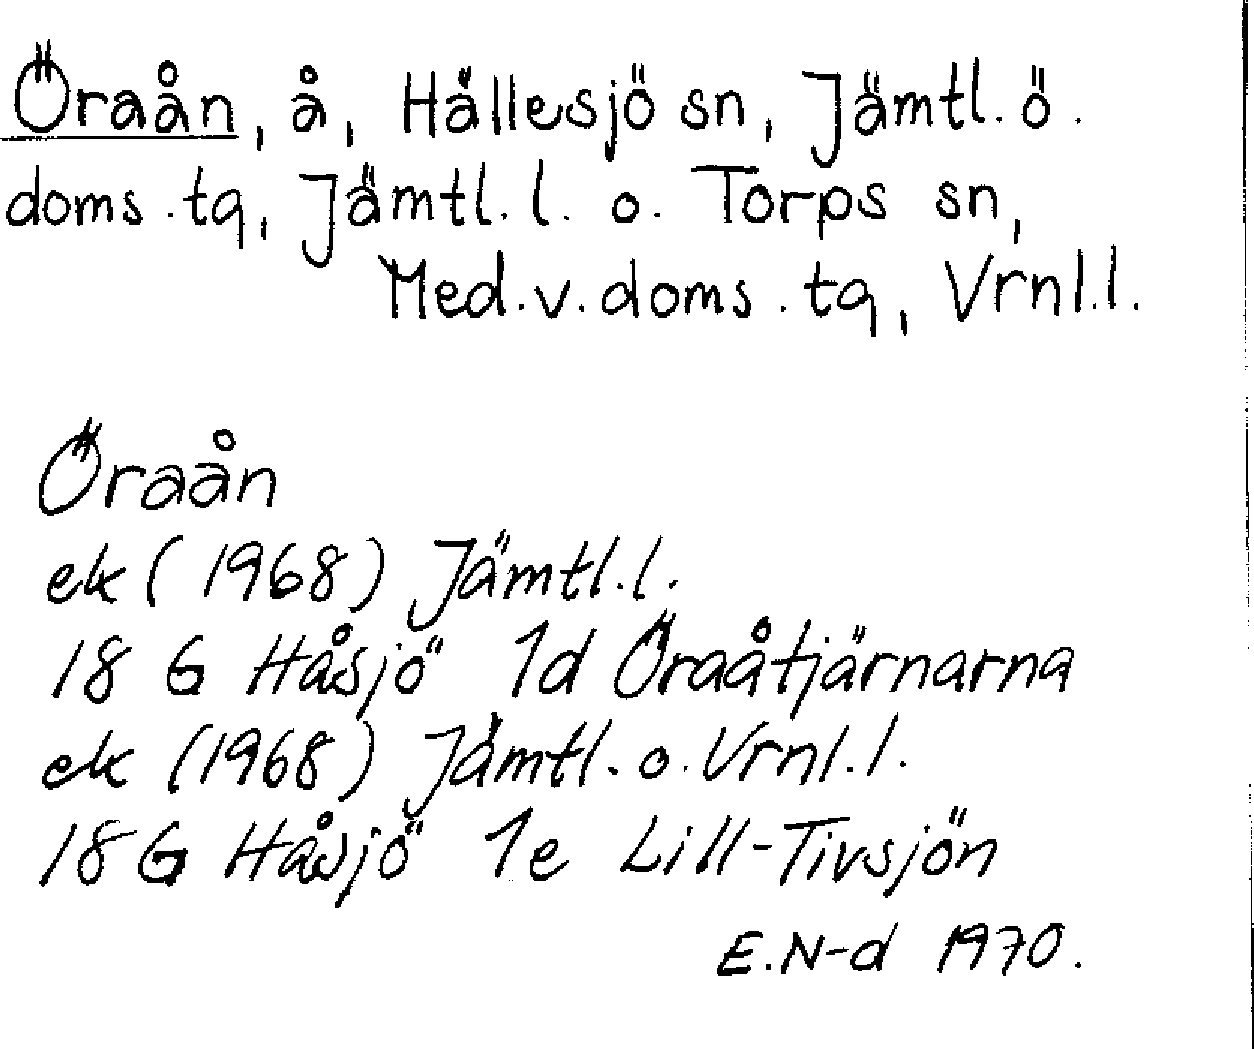 Öraån, å, Hällesjö sn, Jämtl. ö.
doms. tg, Jämtl. l. o. Torps sn,
Med. v. doms. tg, Vrnl. l.
Öraån
ek (1968) Jämtl. l.
18 G Håsjö 1d Öraåtjärnarna
ek (1968) Jämtl. o. Vrnl. l.
18 G Håsjö 1e Lill-Tivsjön
E.N-d 1970.